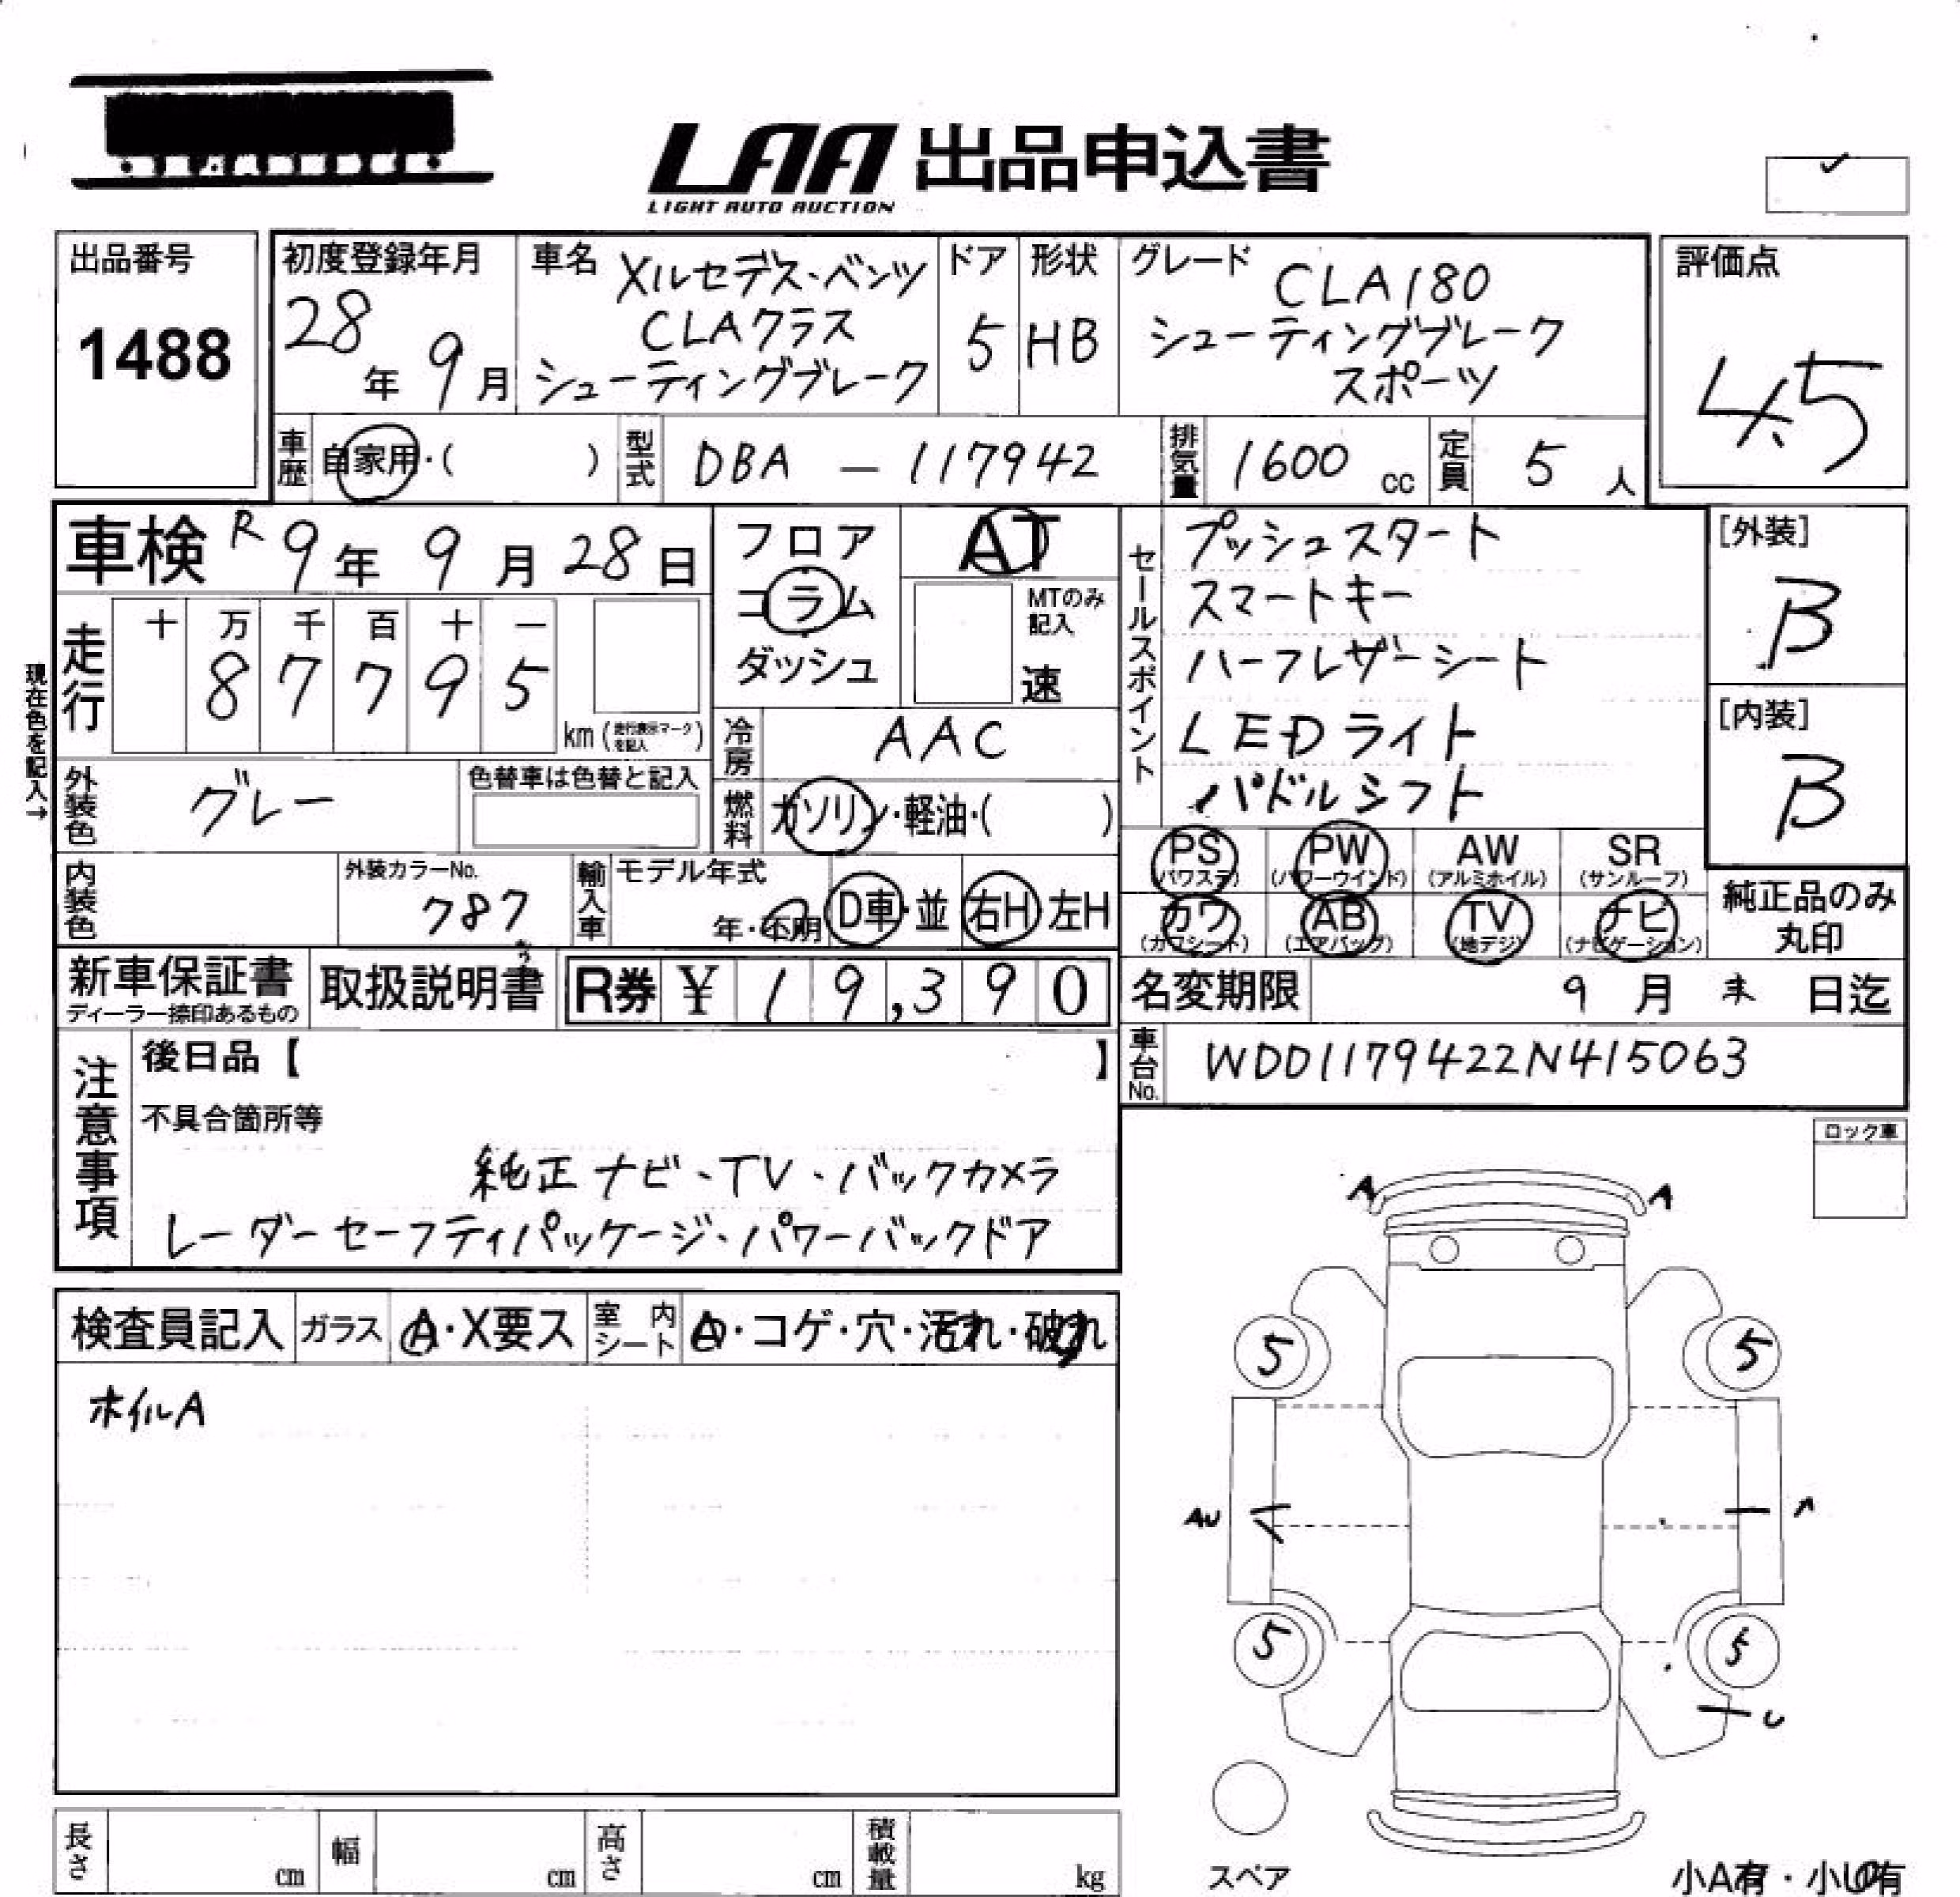 LAA 出品申込書
LIGHT AUTO AUCTION
出品番号
1488
初度登録年月
28年 9月
車名
メルセデス・ベンツ
CLAクラス
シューティングブレーク
ドア
5
形状
HB
グレード
CLA180
シューティングブレーク
スポーツ
評価点
4.5
車歴
自家用・( )
型式
DBA — 117942
排気量
1600 cc
定員
5 人
車検 R 9年 9月 28日
走行
十 万 千 百 十 一
8 7 7 9 5
km (走行表示マークを記入)
現在色を記入→
フロア
コラム
ダッシュ
AT
MTのみ
記入
速
冷房
AAC
燃料
ガソリン・軽油・( )
外装色
グレー
色替車は色替と記入
内装色
外装カラーNo.
787
輸入車
モデル年式
年・不明
D車・並
右H 左H
セールスポイント
プッシュスタート
スマートキー
ハーフレザーシート
LEDライト
パドルシフト
[外装]
B
[内装]
B
PS
(パワステ)
PW
(パワーウインド)
AW
(アルミホイル)
SR
(サンルーフ)
カワ
(カワシート)
AB
(エアバッグ)
TV
(地デジ)
ナビ
(ナビゲーション)
純正品のみ
丸印
新車保証書
ディーラー捺印あるもの
取扱説明書
R券 ¥ 19,390
名変期限
9月 末 日迄
車台No.
WDD1179422N415063
注意事項
後日品【 】
不具合箇所等
純正ナビ、TV、バックカメラ
レーダーセーフティパッケージ、パワーバックドア
ロック車
検査員記入
ガラス
A・X要ス
室内シート
・コゲ・穴・汚れ・破れ
ホイルA
A
A
5
5
AU
A
5
5
U
スペア
長さ cm
幅 cm
高さ cm
積載量 kg
小A有・小U有